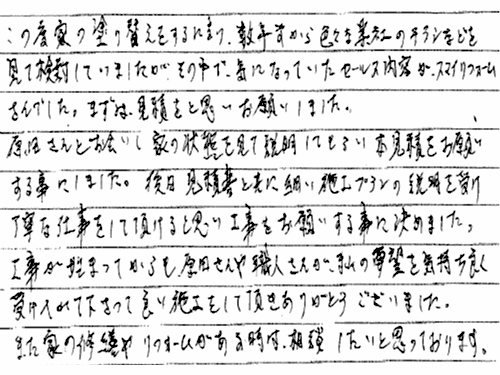 この度家の塗り替えをするにあたり、数年まえから色々な業社のチラシなどを
見て検討していましたがその中で、気になっていたセールス内容が、スマイルリフォーム
さんでした。まずは、見積をと思いお願いしました。
原田さんとお会いし家の状態を見て説明してもらい本見積をお願い
する事にしました。後日見積書と共に細い施工プランの説明を受け
丁寧な仕事をして頂けると思い工事をお願いする事に決めました。
工事が始まってからも、原田さんや職人さんが、私の要望を気持ち良く
受け入れて下さって良い施工をして頂きありがとうございました。
また家の修繕やリフォームがある時は、相談したいと思っております。